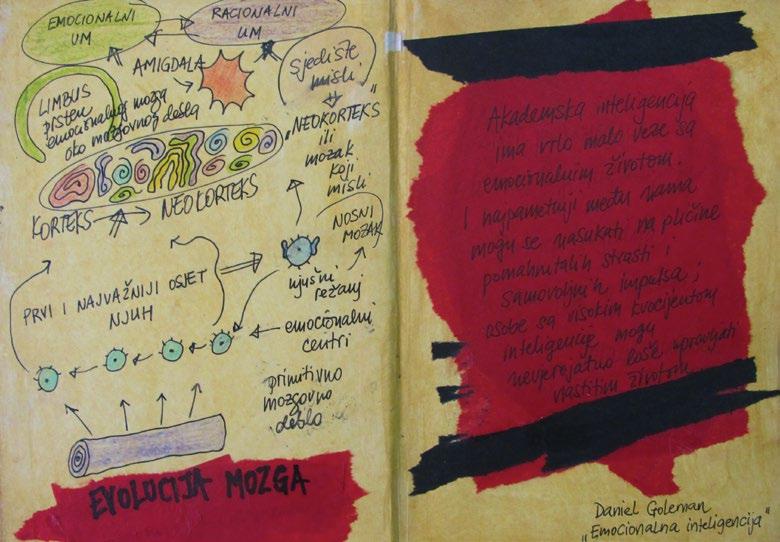 EMOCIONALNI
UM
RACIONALNI
UM
AMIGDALA
Sjedište
misli
LIMBUS
prsten
emocionalnog mozga
oko moždanog debla
"NEOKORTEKS"
ili
mozak
koji
misli
KORTEKS
NEOKORTEKS
NOSNI
MOZAK
PRVI I NAJVAŽNIJI OSJET
NJUH
njušni
režanj
emocionalni
centri
primitivno
mozgovno
deblo
EVOLUCIJA MOZGA
Akademska inteligencija
ima vrlo malo veze sa
emocionalnim životom.
I najpametniji među nama
mogu se nasukati na pličine
pomahnitalih strasti i
samovoljnih impulsa;
osobe sa visokim kvocijentom
inteligencije mogu
nevjerojatno loše upravljati
vlastitim životom
Daniel Goleman
"Emocionalna inteligencija"